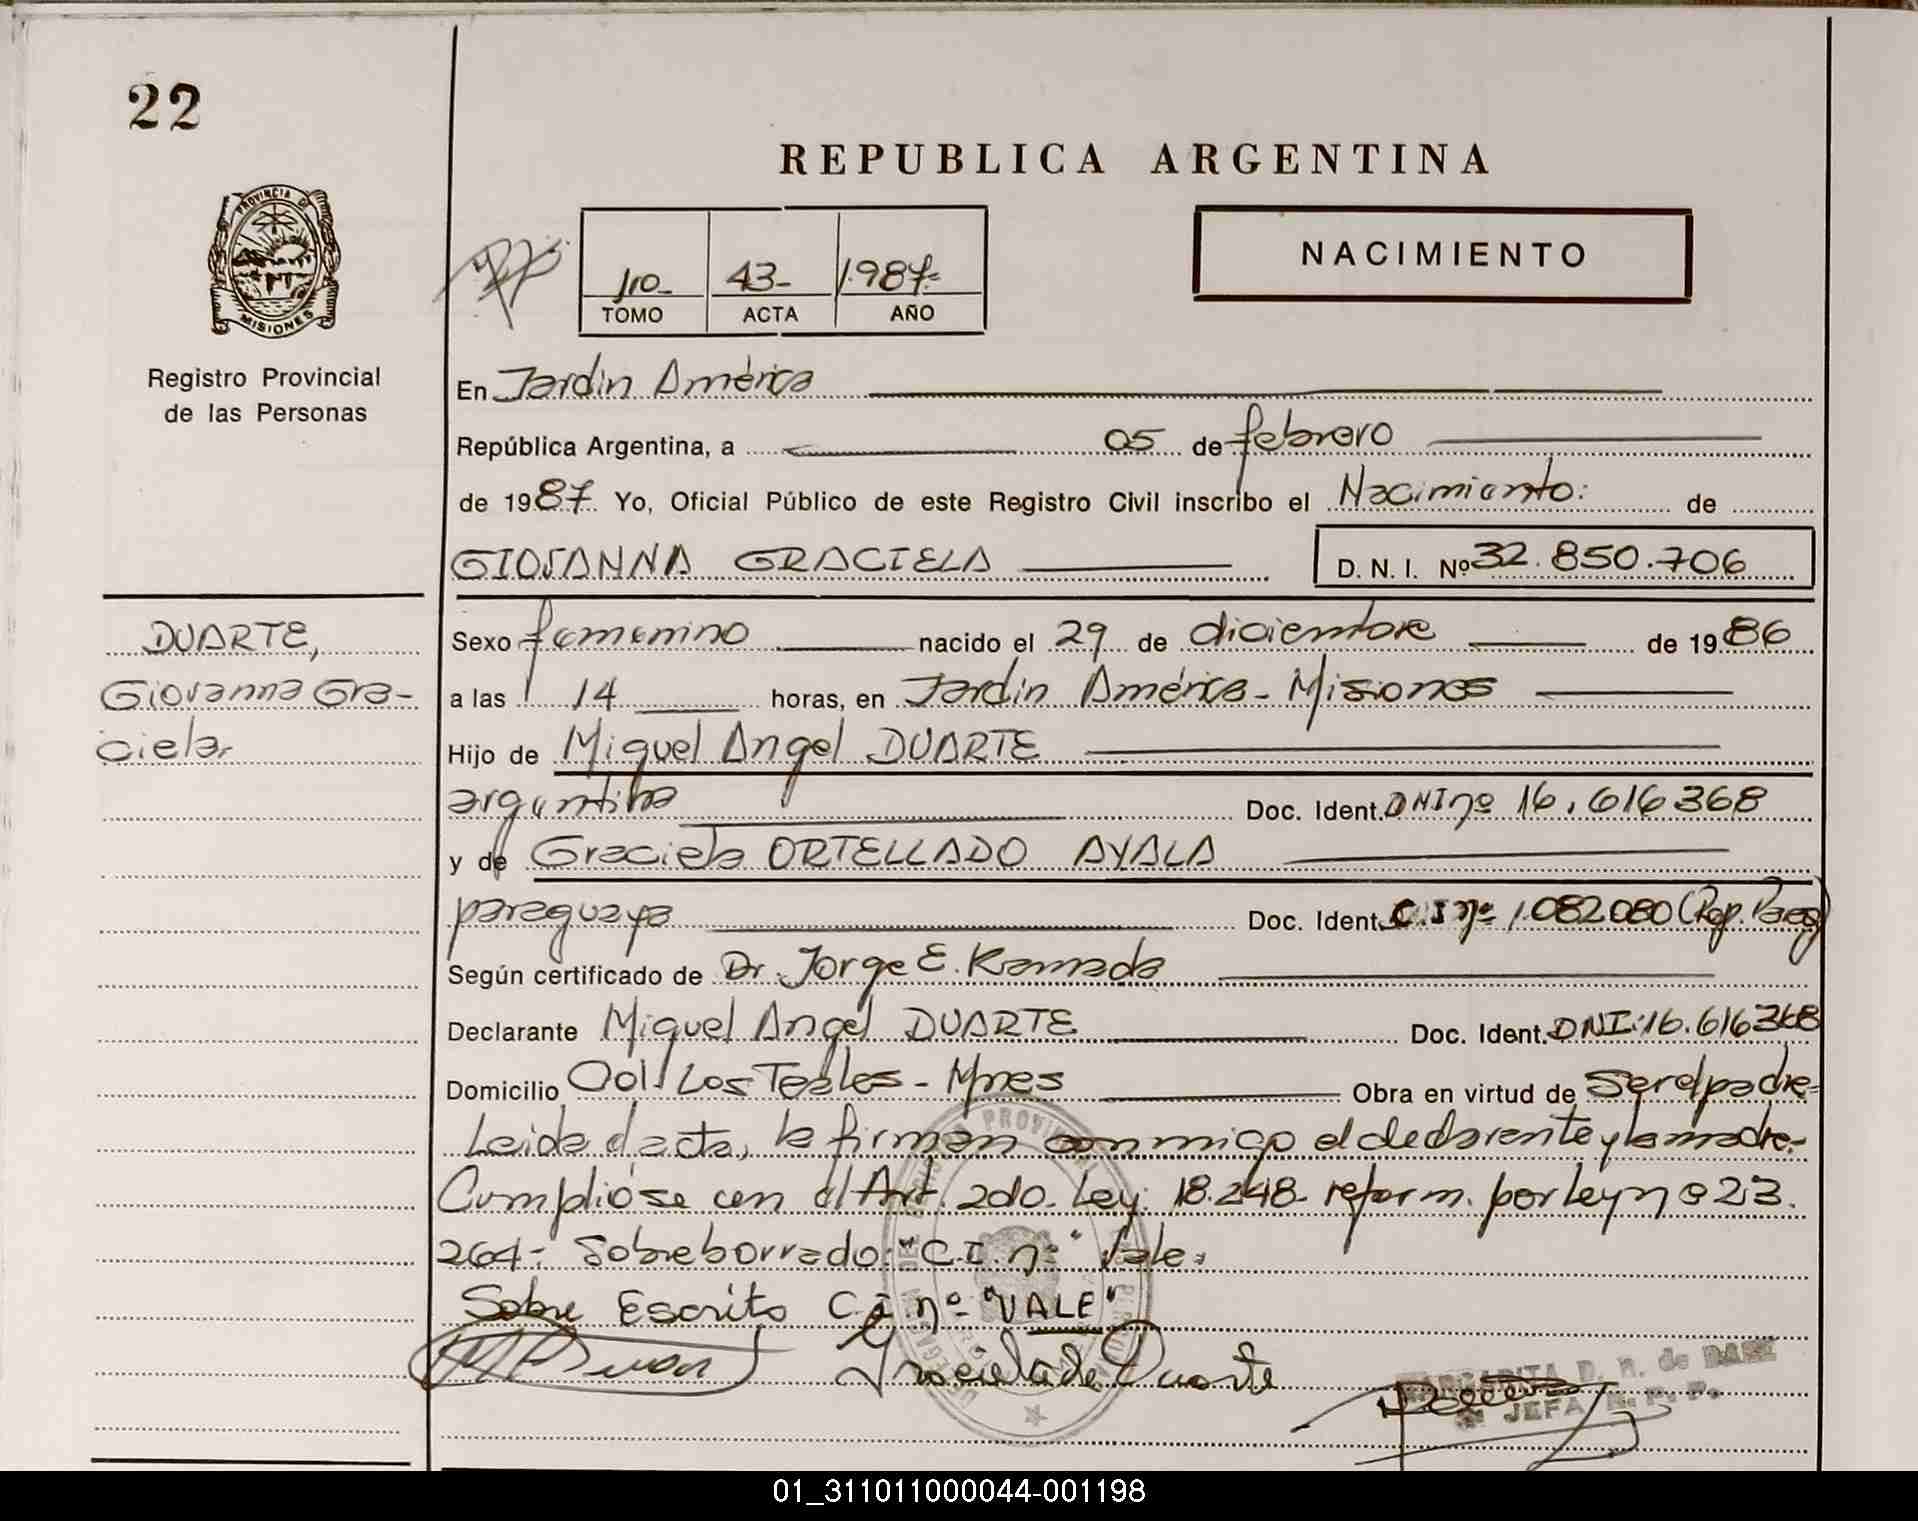 22
REPUBLICA ARGENTINA
PROVINCIA DE
MISIONES
Registro Provincial
de las Personas
1º 43- 1.987.-
TOMO ACTA AÑO
NACIMIENTO
En Jardin América
República Argentina, a 05 de febrero
de 1987 Yo, Oficial Público de este Registro Civil inscribo el Nacimiento: de
GIOVANNA GRACIELA D. N. I. Nº 32.850.706
DUARTE,
Giovanna Gra-
ciela
Sexo femenino nacido el 29 de diciembre de 1986
a las 14 horas, en Jardin América - Misiones
Hijo de Miguel Angel DUARTE
argentina Doc. Ident. DNI nº 16.616368
y de Graciela ORTELLADO AYALA
paraguaya Doc. Ident. C.I nº 1.082.080 (Rep. Parag)
Según certificado de Dr. Jorge E. Kamada
Declarante Miguel Angel DUARTE Doc. Ident. DNI: 16.616368
Domicilio Col. Los Teales - Mnes Obra en virtud de ser el padre-
Leida el acta, la firman conmigo el declarante y la madre.-
Cumplióse con el Art. 2do. Ley: 18.248- reform. por ley nº 23.
264- Sobreborrado: C.I. nº "Vale.
Sobre Escrito C.I. nº "VALE"
Graciela de Duarte
MARGARITA D. R. de
JEFA R. P. P.
01_311011000044-001198